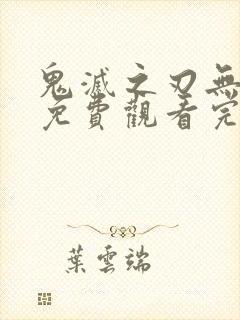 鬼滅之刃無
免費觀看完
葉雲端